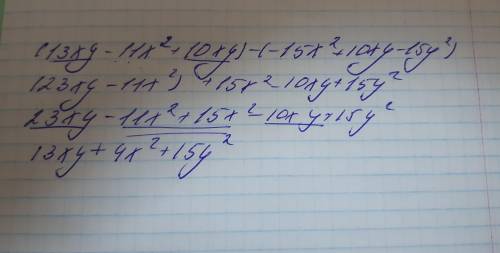 (13xy - 11x² + 10xy) - (-15x² + 10xy - 15y²)
(23xy - 11x²) + 15x² - 10xy + 15y²
23xy - 11x² + 15x² - 10xy + 15y²
13xy + 4x² + 15y²